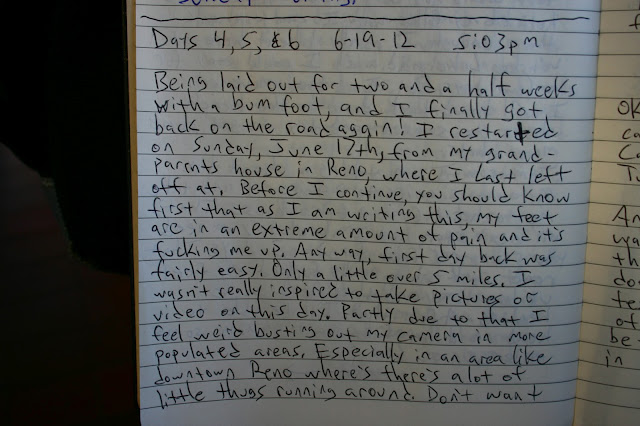 Days 4, 5, & 6 6-19-12 5:03pm
Being laid out for two and a half weeks
with a bum foot, and I finally got
back on the road again! I restarted
on Sunday, June 17th, from my grand-
parents house in Reno, where I last left
off at. Before I continue, you should know
first that as I am writing this, my feet
are in an extreme amount of pain and it's
fucking me up. Any way, first day back was
fairly easy. Only a little over 5 miles. I
wasn't really inspired to take pictures or
video on this day. Partly due to that I
feel weird busting out my camera in more
populated areas. Especially in an area like
downtown Reno where's there's alot of
little thugs running around. Don't want
OK
An
th
do
te
of
be
in